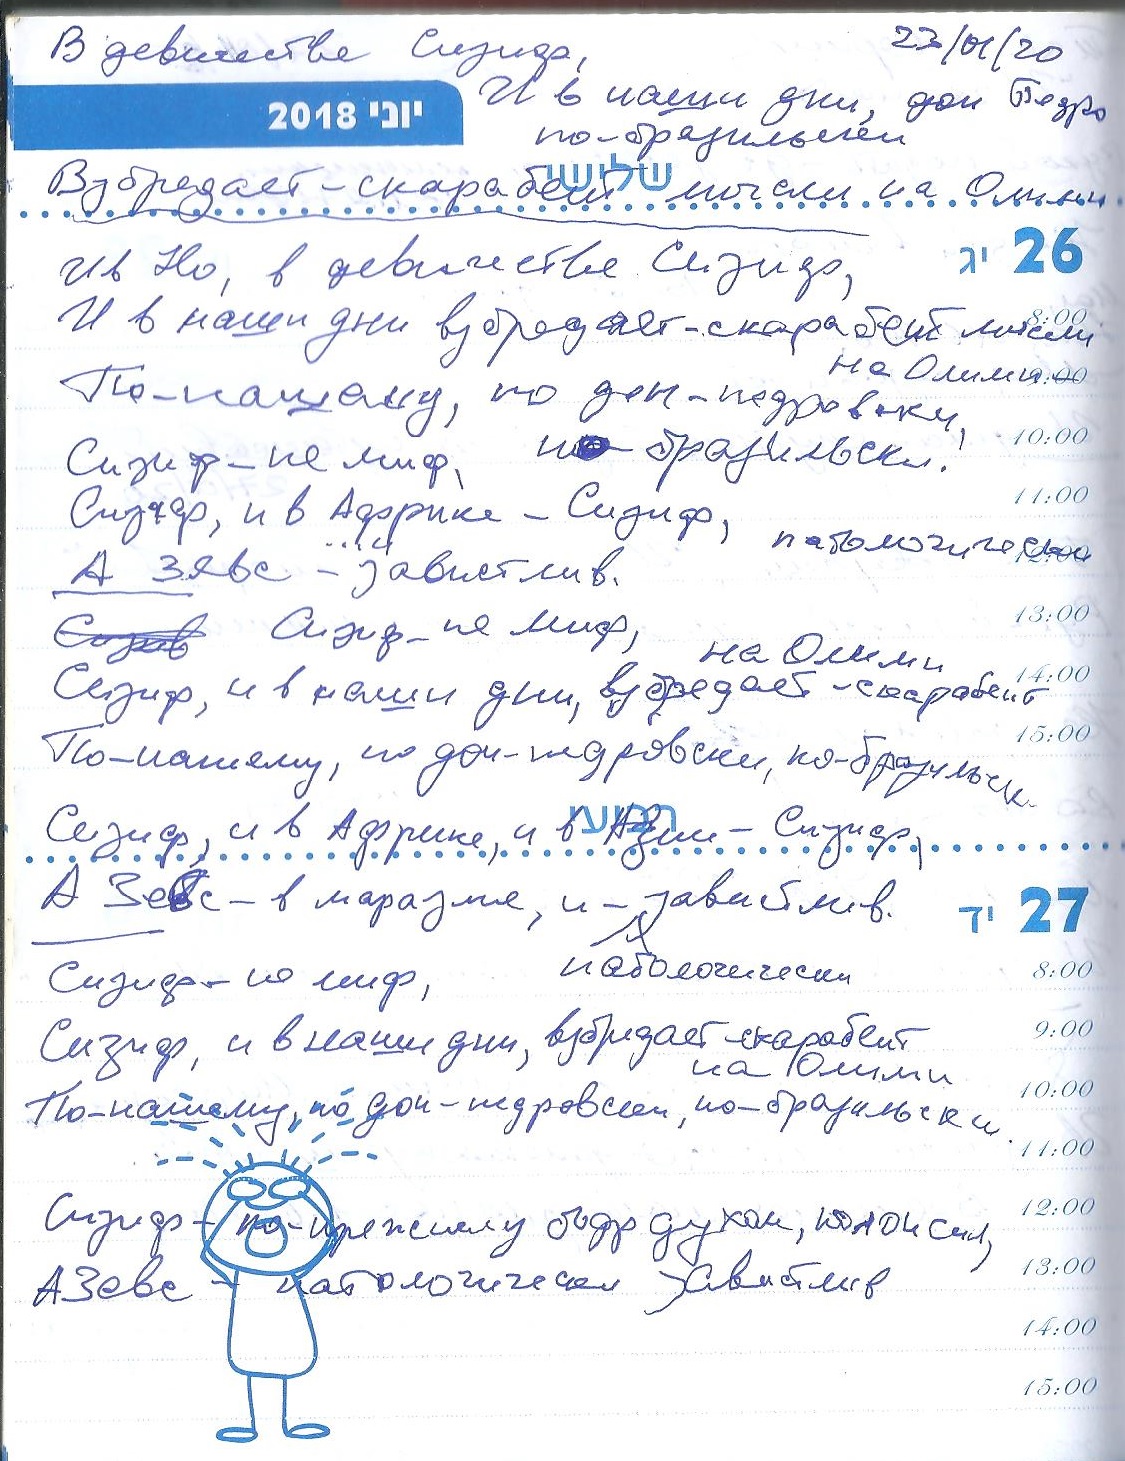 В девичестве Сизиф, 23/01/20
И в наши дни, дон Педро
יוני 2018
по-бразильски
שלישי
Взбредает-скарабеит мысли на Олимп
יג 26
И в Ио, в девичестве Сизиф,
8:00
И в наши дни взбредает-скарабеит мысли
на Олимп
По-нашему, по дон-педровски,
10:00
Сизиф-не миф, по бразильски!
11:00
Сизиф, и в Африке - Сизиф,
патологически
12:00
А Зевс - завистлив.
13:00
Сизиф-не миф,
на Олимп
14:00
Сизиф, и в наши дни, взбредает-скарабеит
15:00
По-нашему, по дон-педровски, по-бразильск.
רביעי
Сизиф, и в Африке, и в Азии - Сизиф,
А Зевс - в маразме, и - завистлив.
יד 27
патологически
8:00
Сизиф - не миф,
9:00
Сизиф, и в наши дни, взбредает-скарабеит
на Олимп
10:00
По-нашему, по дон-педровски, по-бразильски.
11:00
12:00
Сизиф - по-прежнему бодр духом, полон сил,
13:00
А Зевс - патологически завистлив
14:00
15:00